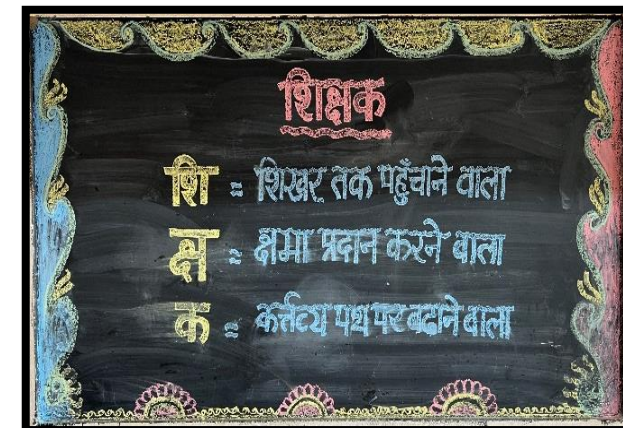 शिक्षक
शि = शिखर तक पहुँचाने वाला
क्ष = क्षमा प्रदान करने वाला
क = कर्तव्य पथ पर बढाने वाला